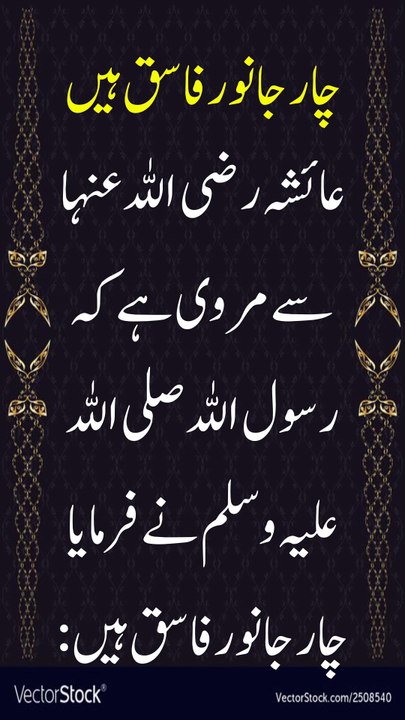 چار جانور فاسق ہیں
عائشہ رضی اللہ عنہا
سے مروی ہے کہ
رسول اللہ صلی اللہ
علیہ وسلم نے فرمایا
چار جانور فاسق ہیں:
VectorStock®
VectorStock.com/2508540